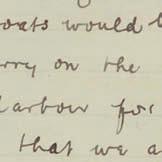 boats would b
rry on the
harbour for
that we a